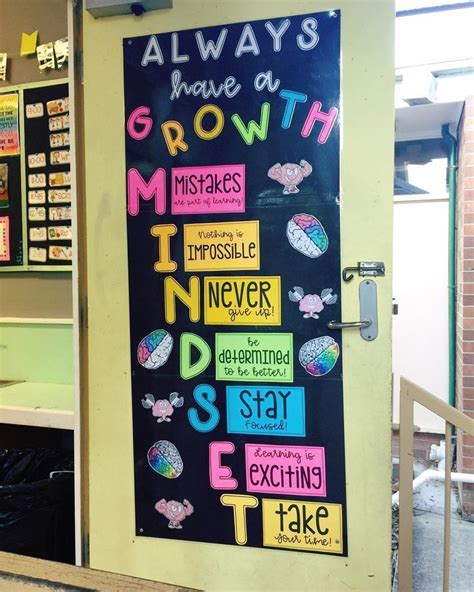 ALWAYS
have a
GROWTH
M
MISTAKES
are part of learning!
I
Nothing is
IMPOSSIBLE
N
NEVER
give up!
D
be
determined
to be better!
S
STAY
focused!
E
Learning is
EXCITING
T
take
your time!